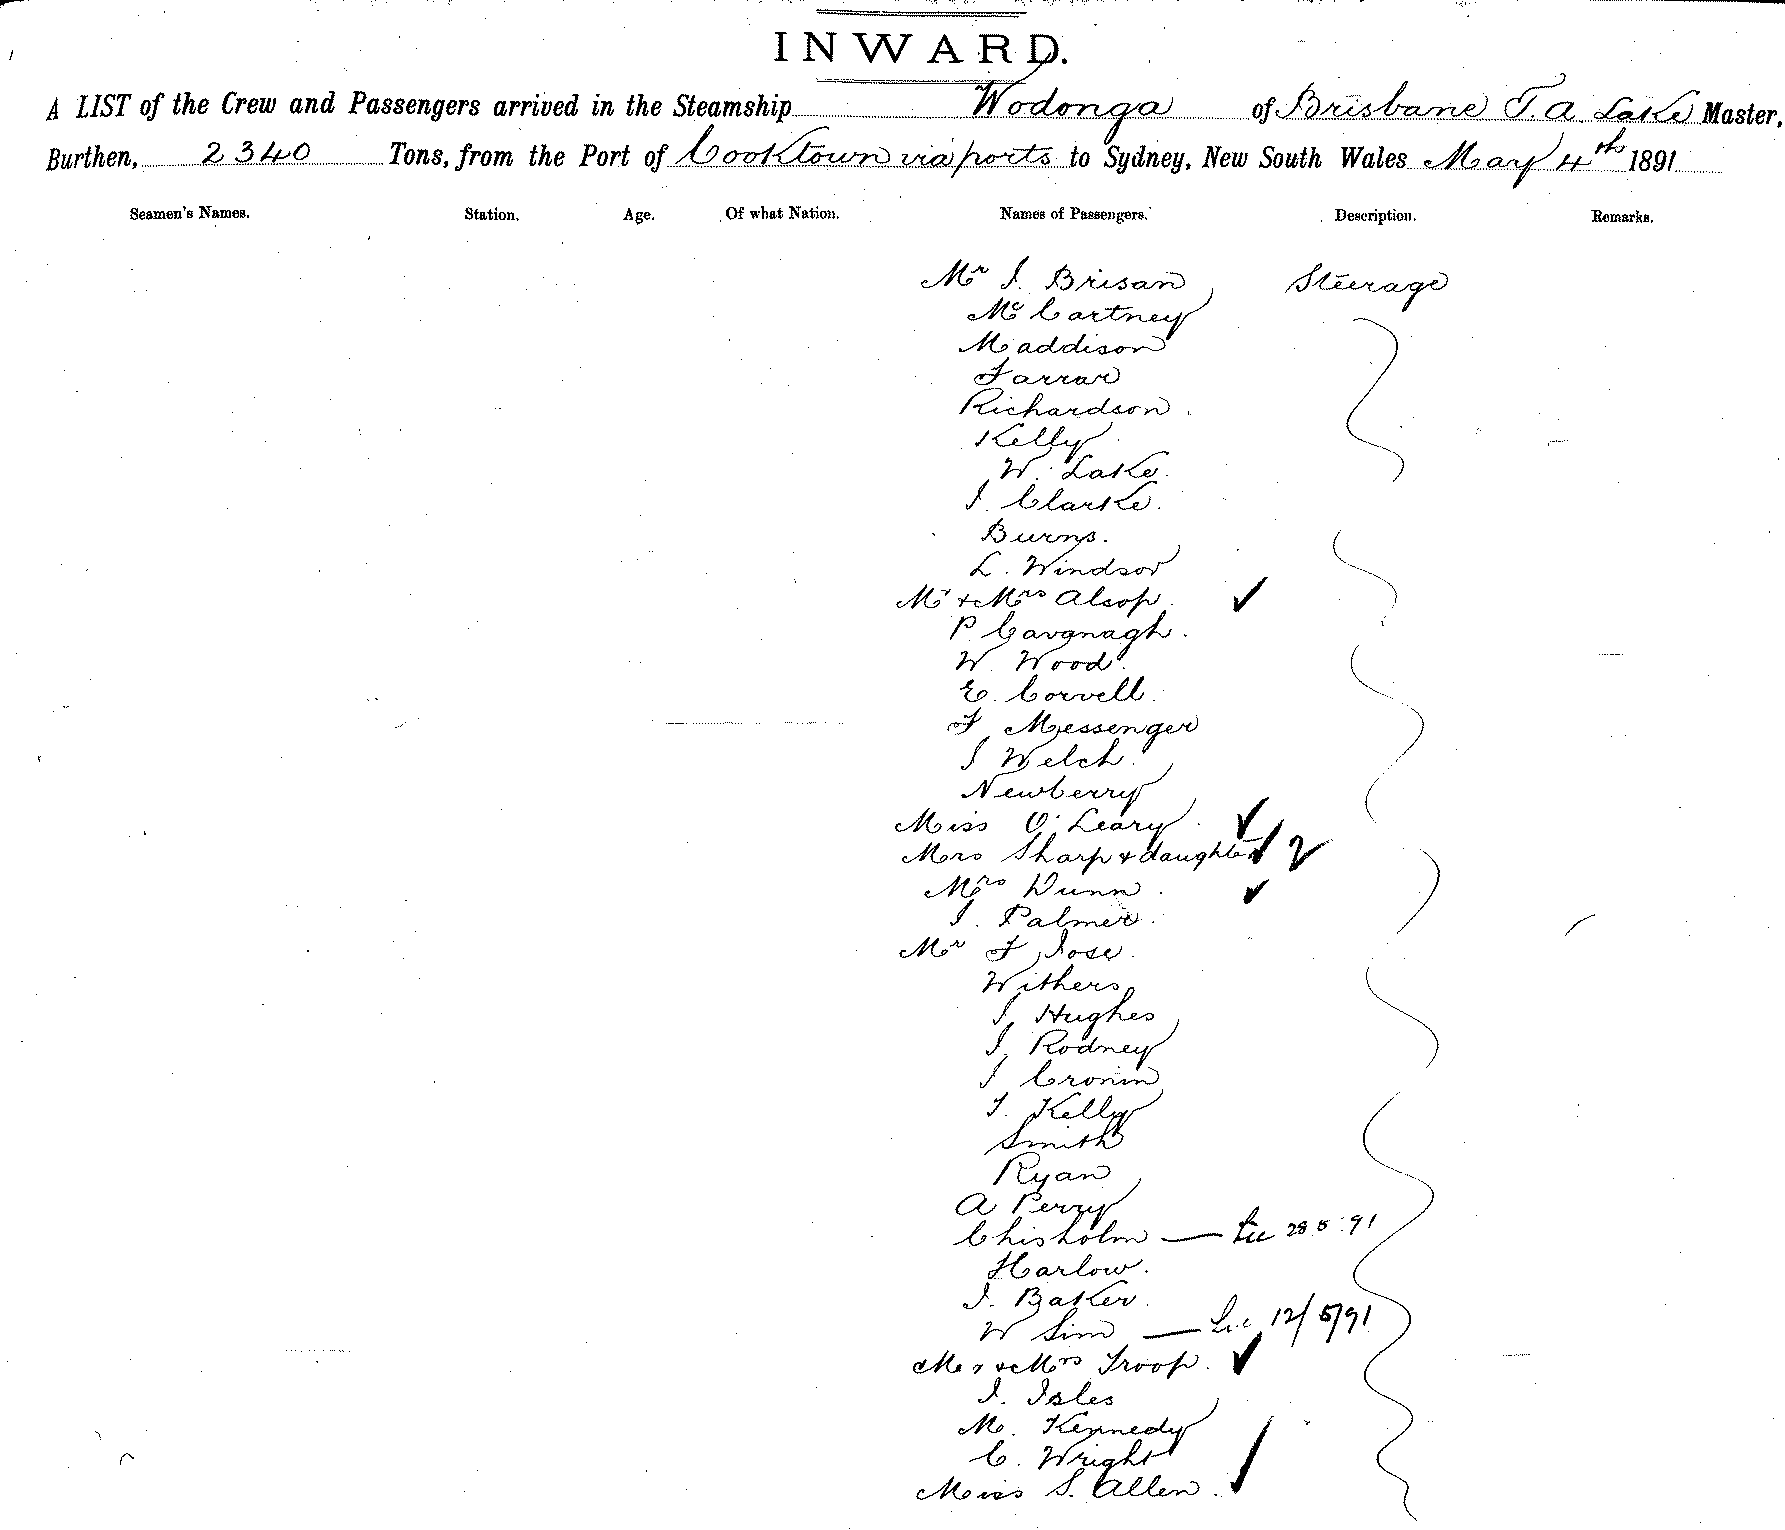 INWARD.
A LIST of the Crew and Passengers arrived in the Steamship Wodonga of Brisbane T. A. Lake Master,
Burthen, 2340 Tons, from the Port of Cooktown via ports to Sydney, New South Wales May 4th 1891
Seamen's Names. Station. Age. Of what Nation. Names of Passengers. Description. Remarks.
Mr J. Brisan Steerage
McCartney
Maddison
Farrar
Richardson
Kelly
W. Lake
J. Clarke
Burns
L. Windsor
Mr & Mrs Alsop ✓
P Cavanagh
W. Wood
E. Corvell
F Messenger
J Welch
Newberry
Miss O'Leary ✓
Mrs Sharp & daughter ✓ 2
Mrs Dunn ✓
J. Palmer
Mr F Jose
Withers
J Hughes
J Rodney
J Cronin
J. Kelly
Smith
Ryan
A Perry
Chisholm — 28 5 91
Harlow
J. Baker
W Sim — 12/5/91
Mr & Mrs Troop ✓
J. Isles
M. Kennedy
C. Wright
Miss S. Allen ✓